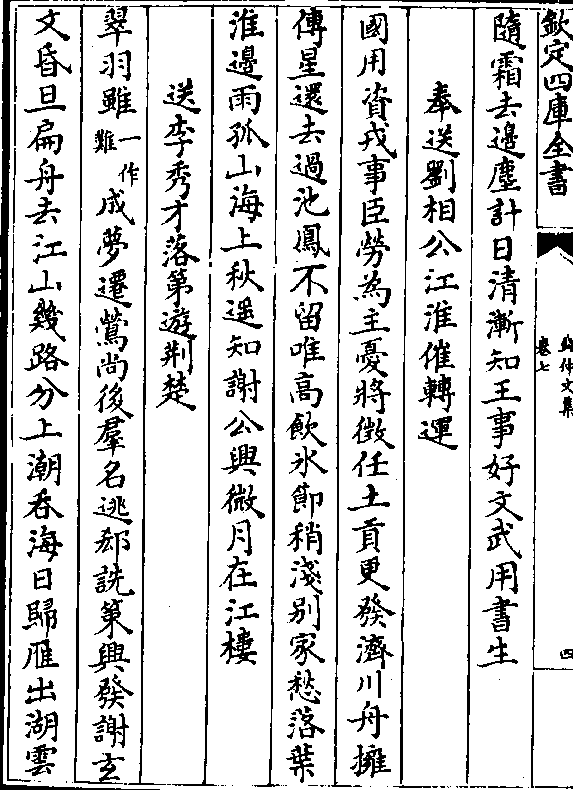 欽定四庫全書
錢仲文集
卷七
四
隨霜去邊塵計日清漸知王事好文武用書生
奉送劉相公江淮催轉運
國用資戎事臣勞為主憂將徴任土貢更發濟川舟擁
傳星還去過池鳳不留唯高飲氷節稍淺别家愁落葉
淮邊雨孤山海上秋遥知謝公興微月在江樓
送李秀才落第遊荆楚
翠羽雖一作難成夢遷鶯尚後羣名逃郄詵第興發謝玄
文昏旦扁舟去江山幾路分上潮吞海日歸雁出湖雲